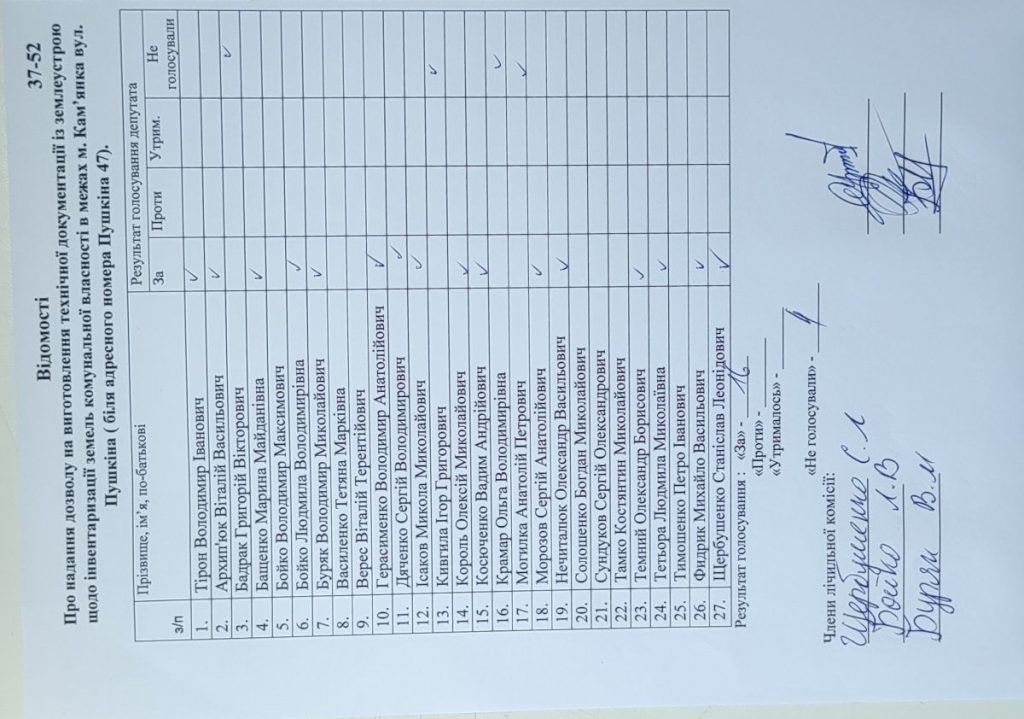 Відомості 37-52
Про надання дозволу на виготовлення технічної документації із землеустрою
щодо інвентаризації земель комунальної власності в межах м. Кам’янка вул.
Пушкіна ( біля адресного номера Пушкіна 47).
з/п Прізвище, ім’я, по-батькові Результат голосування депутата
За Проти Утрим. Не голосували
1. Тірон Володимир Іванович ✓
2. Архип'юк Віталій Васильович ✓
3. Бадрак Григорій Вікторович ✓
4. Бащенко Марина Майданівна ✓
5. Бойко Володимир Максимович
6. Бойко Людмила Володимирівна ✓
7. Буряк Володимир Миколайович ✓
8. Василенко Тетяна Марківна
9. Верес Віталій Терентійович
10. Герасименко Володимир Анатолійович ✓
11. Дяченко Сергій Володимирович ✓
12. Ісаков Микола Миколайович ✓
13. Кивгила Ігор Григорович ✓
14. Король Олексій Миколайович ✓
15. Косюченко Вадим Андрійович ✓
16. Крамар Ольга Володимирівна ✓
17. Могилка Анатолій Петрович ✓
18. Морозов Сергій Анатолійович ✓
19. Нечиталюк Олександр Васильович ✓
20. Солошенко Богдан Миколайович
21. Сундуков Сергій Олександрович
22. Тамко Костянтин Миколайович
23. Темний Олександр Борисович ✓
24. Тетьора Людмила Миколаївна ✓
25. Тимошенко Петро Іванович
26. Фидрик Михайло Васильович ✓
27. Щербушенко Станіслав Леонідович ✓
Результат голосування : «За» - 16
«Проти» -
«Утрималось» -
«Не голосували» - 4
Члени лічильної комісії:
Щербушенко С.Л
Бойко Л.В
Буряк В.М